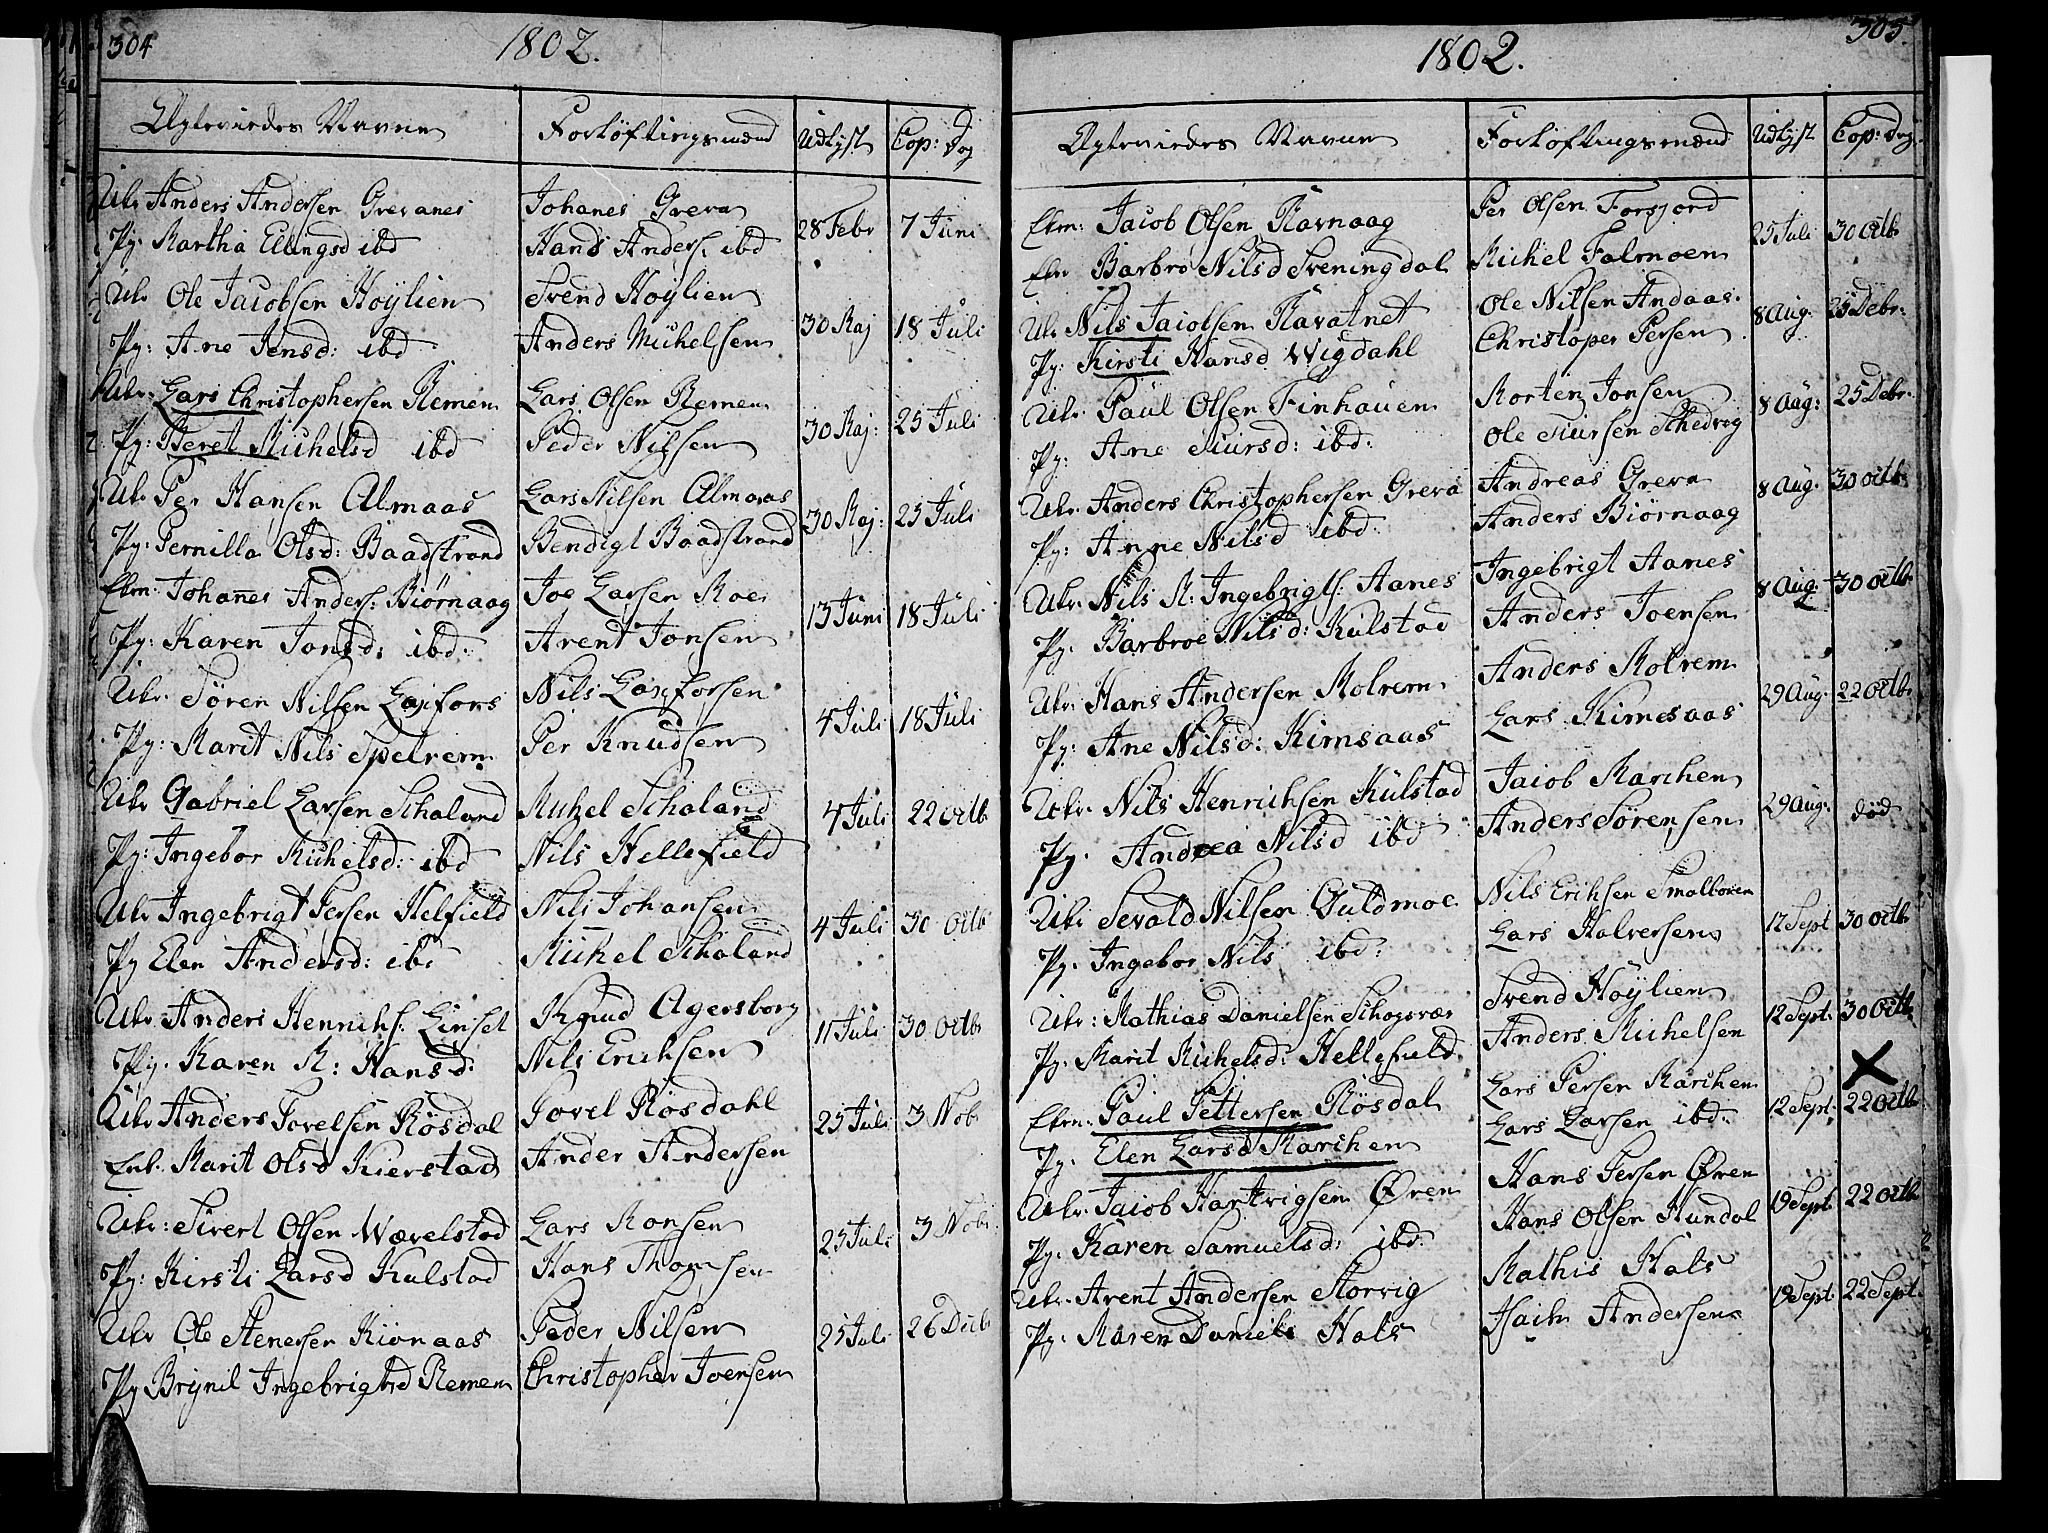 304
1802.
Ægtevieedes Navne Forløftingsmænd Udlyst Cop: Dag
Ukr Anders Andersen Grevanes Johanes Greva 28 Febr 7 Juni
Pg: Martha Ellingsd ibd Hans Anders: ibd
Ukr Ole Jacobsen Høylien Svend Høylien 30 Maj 18 Juli
Pg: Ane Jensd: ibd Anders Michelsen
Ukr. Lars Christophersen Remen Lars Olsen Remen 30 Maj: 25 Juli
Pg: Beret Michelsd ibd Peder Nilsen
Ukr Per Hansen Almaas Lars Nilsen Almaas 30 Maj: 25 Juli
Pg: Pernilla Olsd: Baadstrand Bendigt Baadstrand
Ekm: Johannes Anders: Biørnaag Joe Larsen Moe 13 Juni 18 Juli
Pg: Karen Jonsd: ibd: Arent Jonsen
Ukr. Søren Nilsen Laxfors Nils Laxforsen 4 Juli 18 Juli
Pg: Marit Nils Spelrem Per Knudsen
Ukr Gabriel Larsen Schaland Michel Schaland 4 Juli 22 Octb
Pg: Ingebor Michelsd: ibd Nils Hellefield
Ukr Ingebrigt Persen Helfield Nils Johansen 4 Juli 30 Octb
Pg Elen Andersd: ibd Michel Schaland
Ukr Anders Henrichs: Linset Knud Agersborg 11 Juli 30 Octb
Pg. Karen M: Hansd: Nils Erichsen
Ukr Anders Tovelsen Røsdal Tovel Røsdahl 25 Juli 3 Nobr
Enk. Marit Olsd Kierstad Ander Andersen
Ukr: Sivert Olsen Wævelstad Lars Monsen 25 Juli 3 Nobr
Pg: Kirsti Larsd Kulstad Hans Thomsen
Ukr Ole Stenersen Kiønaas Peder Nilsen 25 Juli 26 Decb
Pg Brynil Ingebrigtsd Remen Christopher Joensen
305.
1802.
Ægtevieedes Navne Forløftingsmænd Udlyst Cop: Dag
Ekm: Jacob Olsen Ravnaag Per Olsen Forsjord 25 Juli 30 Octb
Ekn Barbro Nilsd Sveningdal Michel Falmoen
Ukr Nils Jacobsen Ravatnet Ole Nilsen Andaas. 8 Aug. 25 Debr:
Pg: Kirsti Hansd Wigdahl Christoper Persen
Ukr. Paul Olsen Finhauen Morten Jonsen 8 Aug: 25 Debr.
Pg: Ane Siursd: ibd: Ole Siursen Schedvig
Ukr. Anders Christophersen Greva Andreas Greva 8 Aug. 30 octb.
Pg: Anne Nilsd ibd: Anders Biørnaag
Ukr. Nils M: Ingebrigts: Aanes Ingebrigt Aanes 8 Aug: 30 octb.
Pg: Barbroe Nilsd: Kulstad Anders Joensen
Ukr: Hans Andersen Molrem Anders Molrem 29 Aug. 22 Octb
Pg: Ane Nilsd: Kimsaas Lars Kimesaas
Ukr. Nils Henrichsen Kulstad Jacob Marchen 29 Aug: død
Pg. Andrea Nilsd ibd Anders Sørensen
Ukr Sevald Nilsen Guldmoe Nils Erichsen Smalboren 12 Sept 30 octb
Pg. Ingebor Nils ibd: Lars Halversen
Ukr: Mathias Danielsen Schogsvær Svend Høylien 12 Sept: 30 octb
Pg. Marit Michelsd: Hellefield. Anders Michelsen
Ekm: Paul Pettersen Røsdal Lars Persen Marchen 12 Sept. 22 octb
Pg. Elen Larsd Marchen Lars Larsen ibd:
Ukr. Jacob Hartvigsen Øren Hans Persen Øren 19 Sept. 22 octb
Pg: Karen Samuelsd: ibd: Hans Olsen Hundal
Ukr. Arent Andersen Storvig Mathis Hals 19 Sept: 22 Sept.
Pg: Maren Daniels Hals Isach Andersen